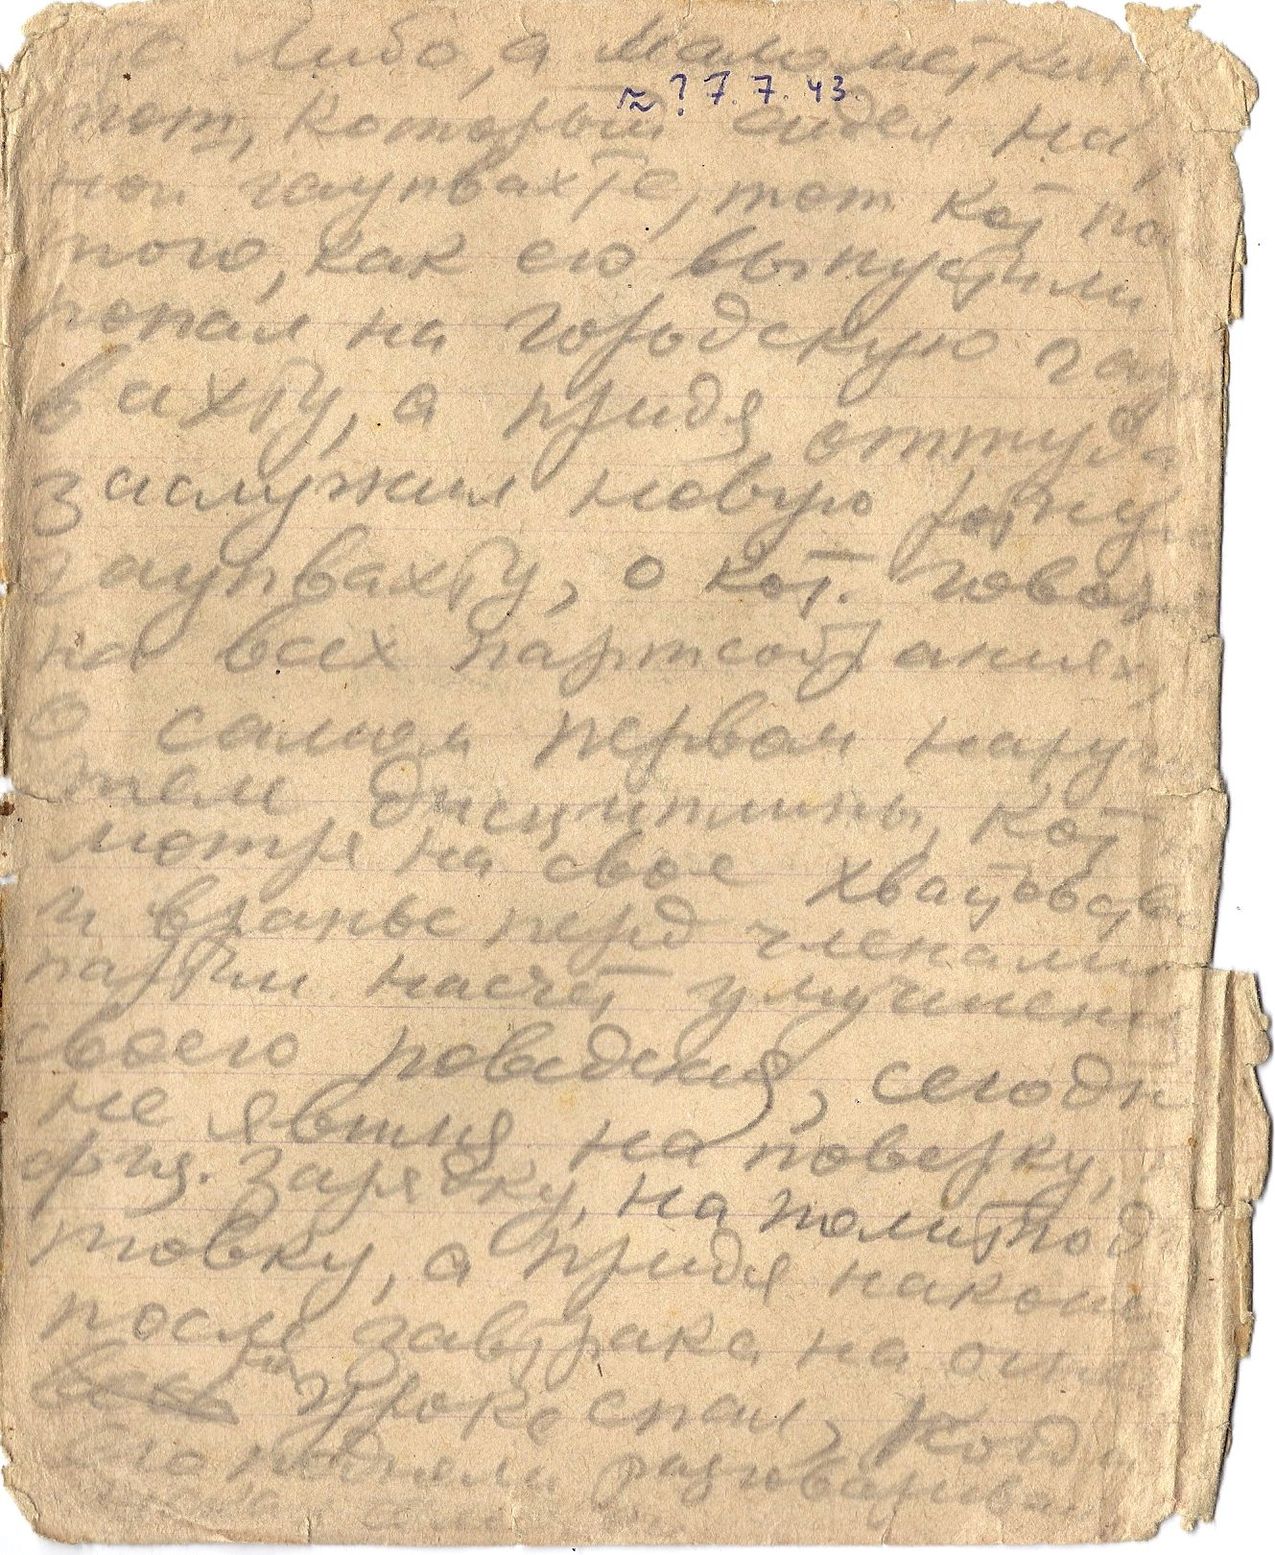 либо, а
≈? 7.7.43.
тот, который сидел на
ной гаупвахте, тот кот по
того, как его выпустили
попал на городскую гау
вахту, а придя оттуда
заслужил новую
гаупвахту, о кот. говор
на всех партсобраниях,
о самом первом нару
теле дисциплины, кот
мотря на свое хвастовство
и вранье перед членами
партии насчет улучшени
своего поведения, сегодн
не явился на поверку,
физ. зарядку, на политпод
товку, а придя наконе
после завтрака на
на уроке спал, когда
его подняли разговарива